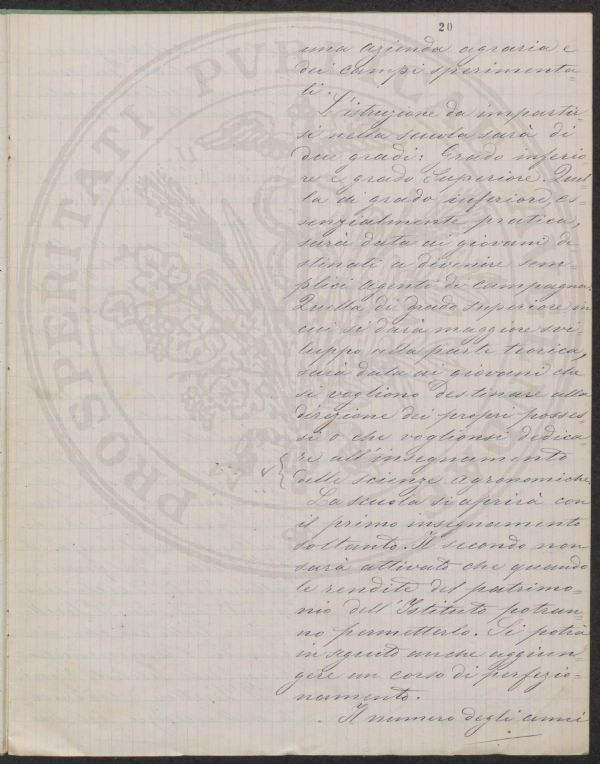 20
una azienda agraria e
dei campi sperimenta=
li.
L'istruzione da impartir=
si nella scuola sarà di
due gradi: Grado inferio
re e grado Superiore. Quel=
la di grado inferiore, es=
senzialmente pratica,
sarà data ai giovani de
stinati a divenire sem
plici agenti di campagna.
Quella di grado superiore in
cui si darà maggiore svi
luppo alla parte teorica,
sarà data ai giovani che
si vogliono destinare alla
direzione dei propri posses=
si o che voglionsi dedica=
re all'insegnamento
delle scienze agronomiche.
La scuola si aprirà con
il primo insegnamento
soltanto. Il secondo non
sarà attivato che quando
le rendite del patrimo=
nio dell'Istituto potran=
no permetterlo. Si potrà
in seguito anche aggiun=
gere un corso di perfezio=
namento.
Il numero degli anni
PROSPERITATI PUBLICAE